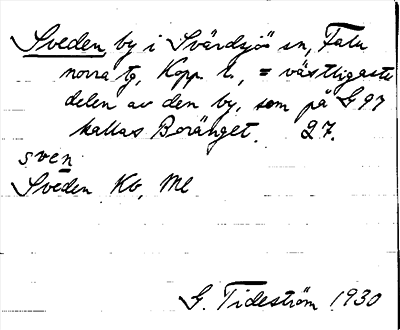 Sveden, by i Svärdsjö sn, Falu
norra tg, Kopp. l., = västligaste
delen av den by, som på G 97
kallas Boränget. 27.
sven
Sveden Kb, Ml
G. Tideström 1930